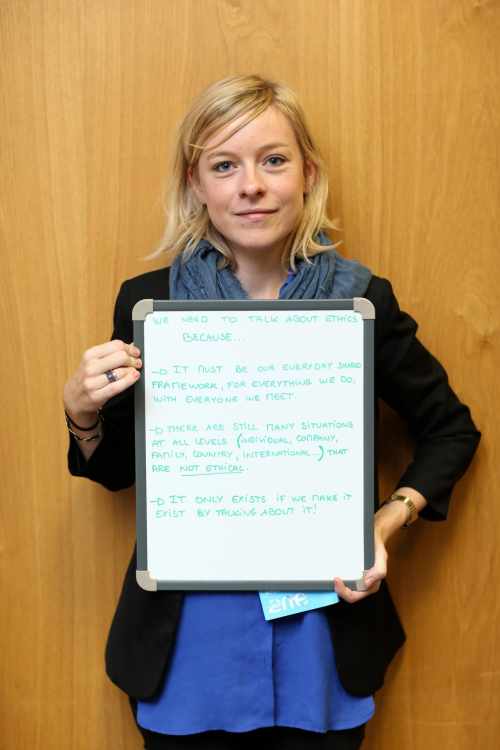 WE NEED TO TALK ABOUT ETHICS
BECAUSE...
→ IT MUST BE OUR EVERYDAY SHARED
FRAMEWORK, FOR EVERYTHING WE DO,
WITH EVERYONE WE MEET
→ THERE ARE STILL MANY SITUATIONS
AT ALL LEVELS (INDIVIDUAL, COMPANY,
FAMILY, COUNTRY, INTERNATIONAL...) THAT
ARE NOT ETHICAL.
→ IT ONLY EXISTS IF WE MAKE IT
EXIST BY TALKING ABOUT IT!